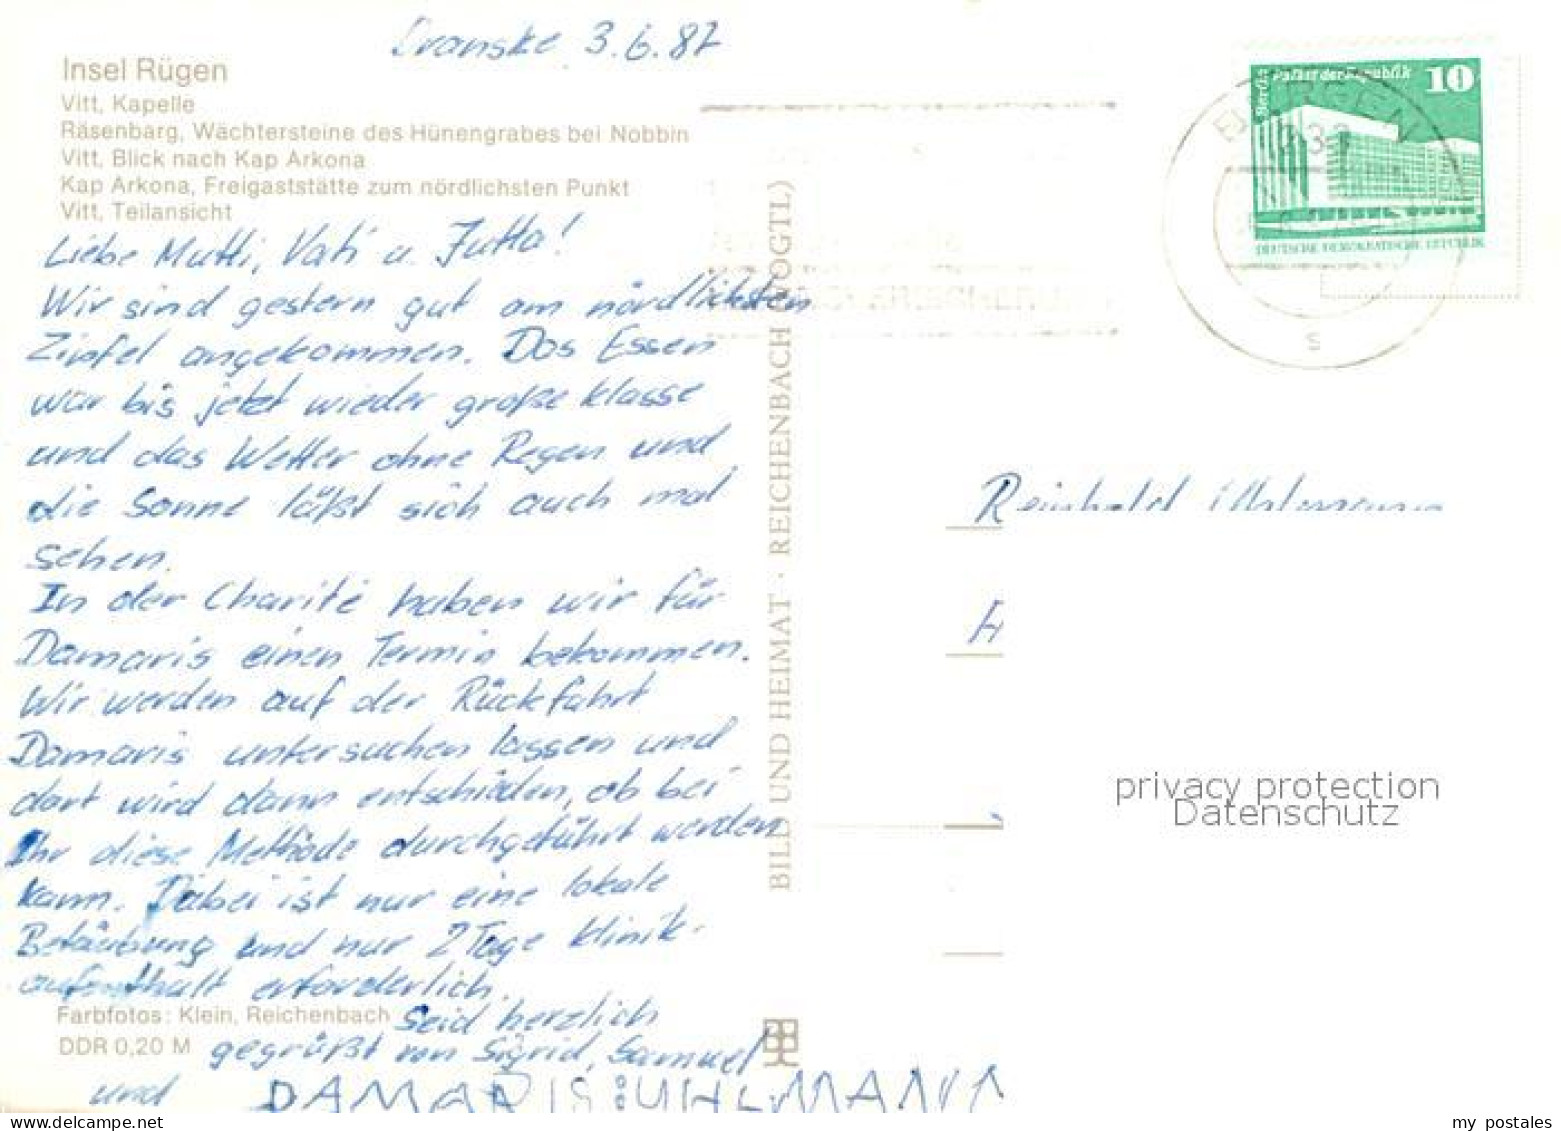 Dranske 3.6.87
Insel Rügen
Vitt, Kapelle
Räsenbarg, Wächtersteine des Hünengrabes bei Nobbin
Vitt, Blick nach Kap Arkona
Kap Arkona, Freigaststätte zum nördlichsten Punkt
Vitt, Teilansicht
Liebe Mutti, Vati u. Jutta!
Wir sind gestern gut am nördlichsten
Zipfel angekommen. Das Essen
war bis jetzt wieder große Klasse
und das Wetter ohne Regen und
die Sonne läßt sich auch mal
sehen.
In der Charité haben wir für
Damaris einen Termin bekommen.
Wir werden auf der Rückfahrt
Damaris untersuchen lassen und
dort wird dann entschieden, ob bei
Ihr diese Methode durchgeführt werden
kann. Dabei ist nur eine lokale
Betäubung und nur 2 Tage Klinik-
aufenthalt erforderlich.
Farbfotos: Klein, Reichenbach
Seid herzlich
DDR 0,20 M
gegrüßt von Sigrid, Samuel
und DAMARIS UHLMANN
BILD UND HEIMAT · REICHENBACH (VOGTL)
Berlin
Palast der Republik
10
DEUTSCHE DEMOKRATISCHE REPUBLIK
BERGEN
s
Reinhold
privacy protection
Datenschutz
my postales